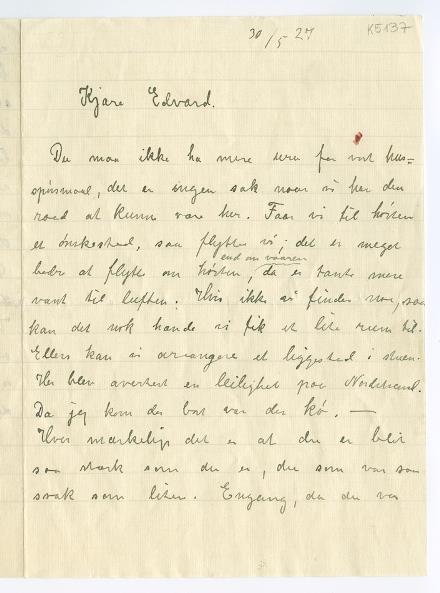 30/5 27
K5137
Kjære Edvard.
Du maa ikke ha mere uro for vort hus=
spörsmaal, det er ingen sak naar vi har den
raad at kunne være her. Faar vi til hösten
et önskested, saa flytter vi; det er meget
end om vaaren
bedre at flytte om hösten, da er tante mere
vant til luften. Hvis ikke vi finder noe, saa
kan det nok hænde vi fik et lite rum til.
Ellers kan vi arrangere et liggested i stuen.
Her blev avertert en leilighet paa Nordstrand.
Da jeg kom der bort var der kö. —
Hvor mærkelig det er at du er blit
saa stærk som du er, du som var saa
svak som liten. Engang, da du var